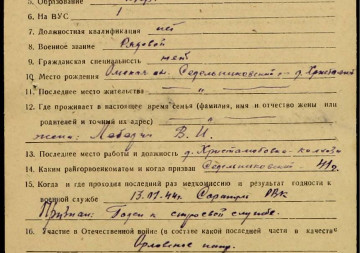 5. Образование
6. На ВУС 1
7. Должностная квалификация нет
8. Военное звание Рядовой
9. Гражданская специальность нет
10. Место рождения Омская обл. Седельниковский
11. Последнее место жительства —"—
12. Где проживает в настоящее время семья (фамилия, имя и отчество жены или
родителей и точный на адрес) —"—
жена: В. И.
13. Последнее место работы и должность
14. Каким райгорвоенкоматом и когда призван Седельниковский 41г.
15. Когда и где проходил последний раз медкомиссию и результат годности к
военной службе 13.01.44г. РВК
Признан: Годен к строевой службе.
16. Участие в Отечественной войне (в составе какой последней части в качестве